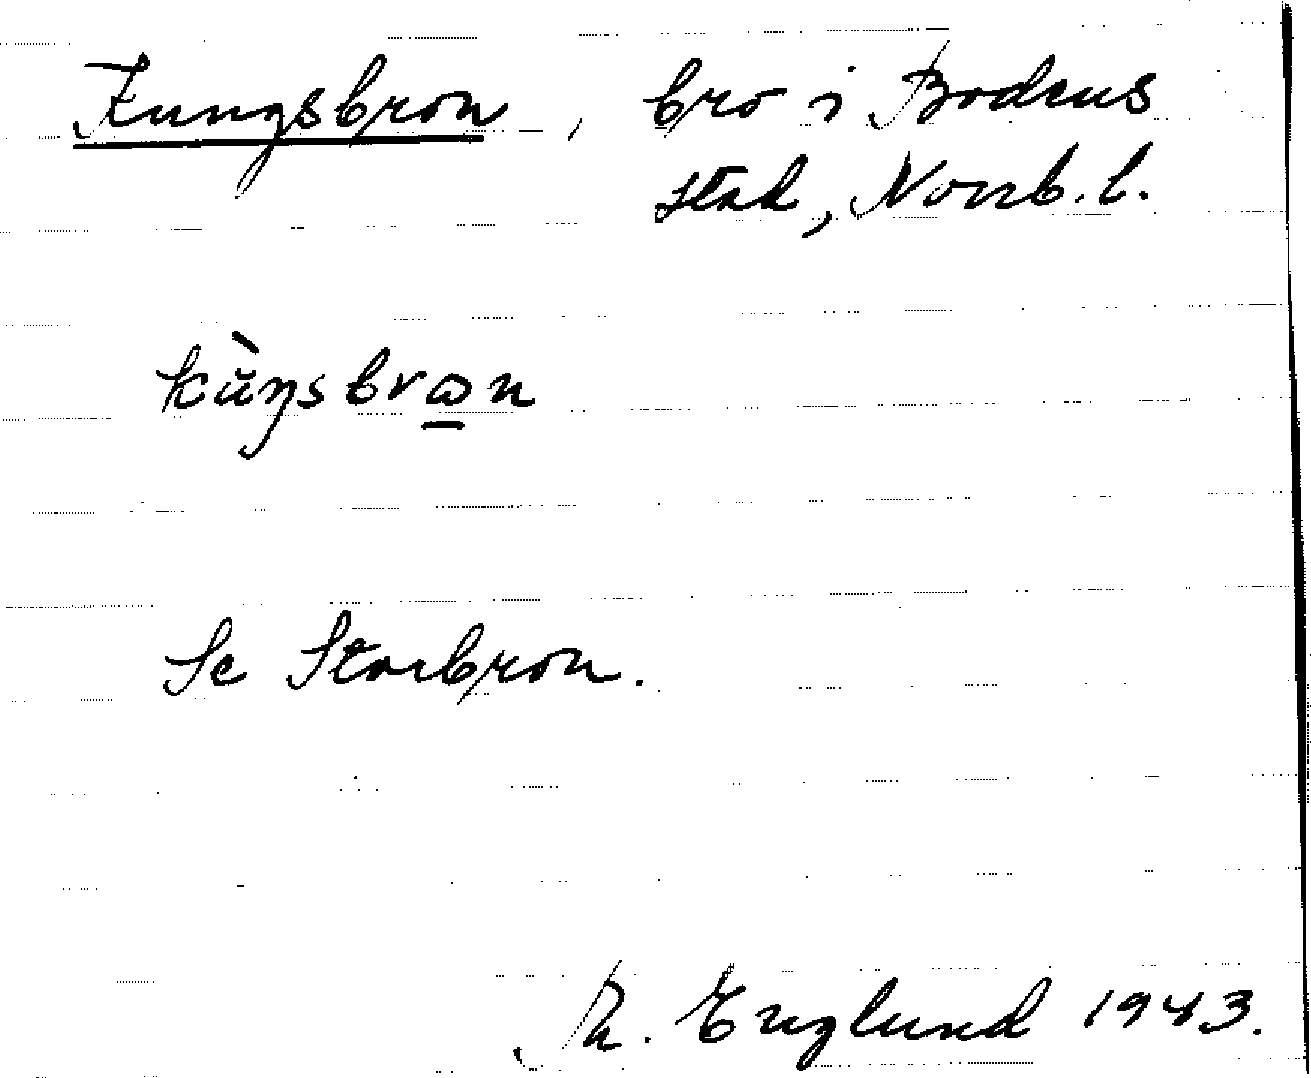 Kungsbron, bro i Bodens
stad, Norrb. l.
kùŋsbrω̱n
Se Storbron.
R. Englund 1943.